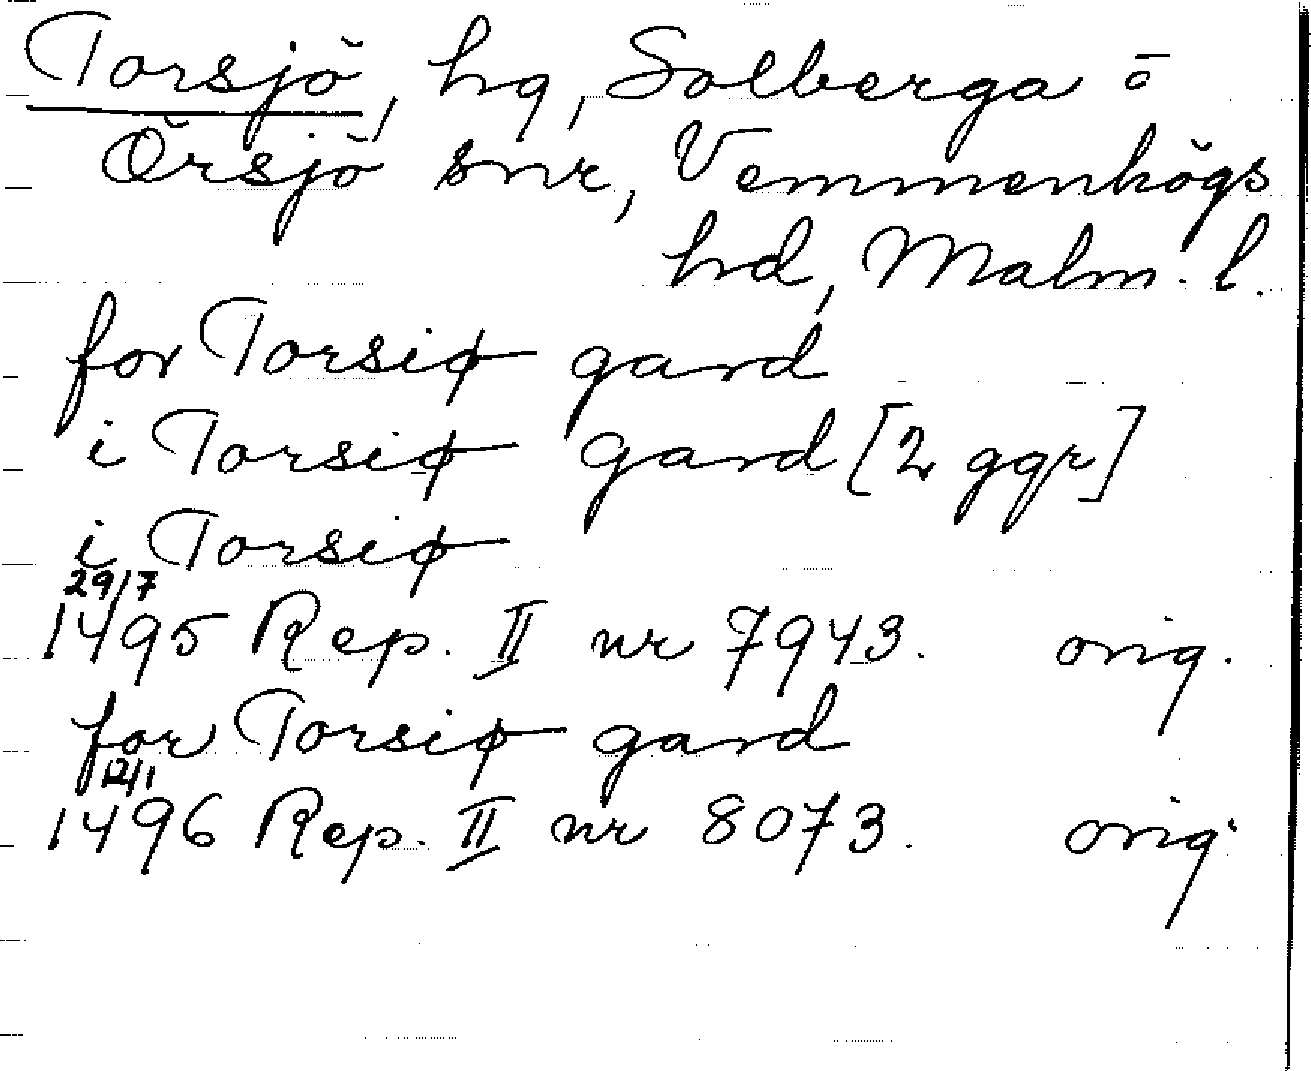 Torsjö, hg, Solberga o
Örsjö snr, Vemmenhögs
hd, Malm. l.
for Torsiø gard
i Torsiø gard [2 ggr]
i Torsiø
29/7
1495 Rep. II nr 7943. orig.
for Torsiø gard
12/1
1496 Rep. II nr 8073. orig.